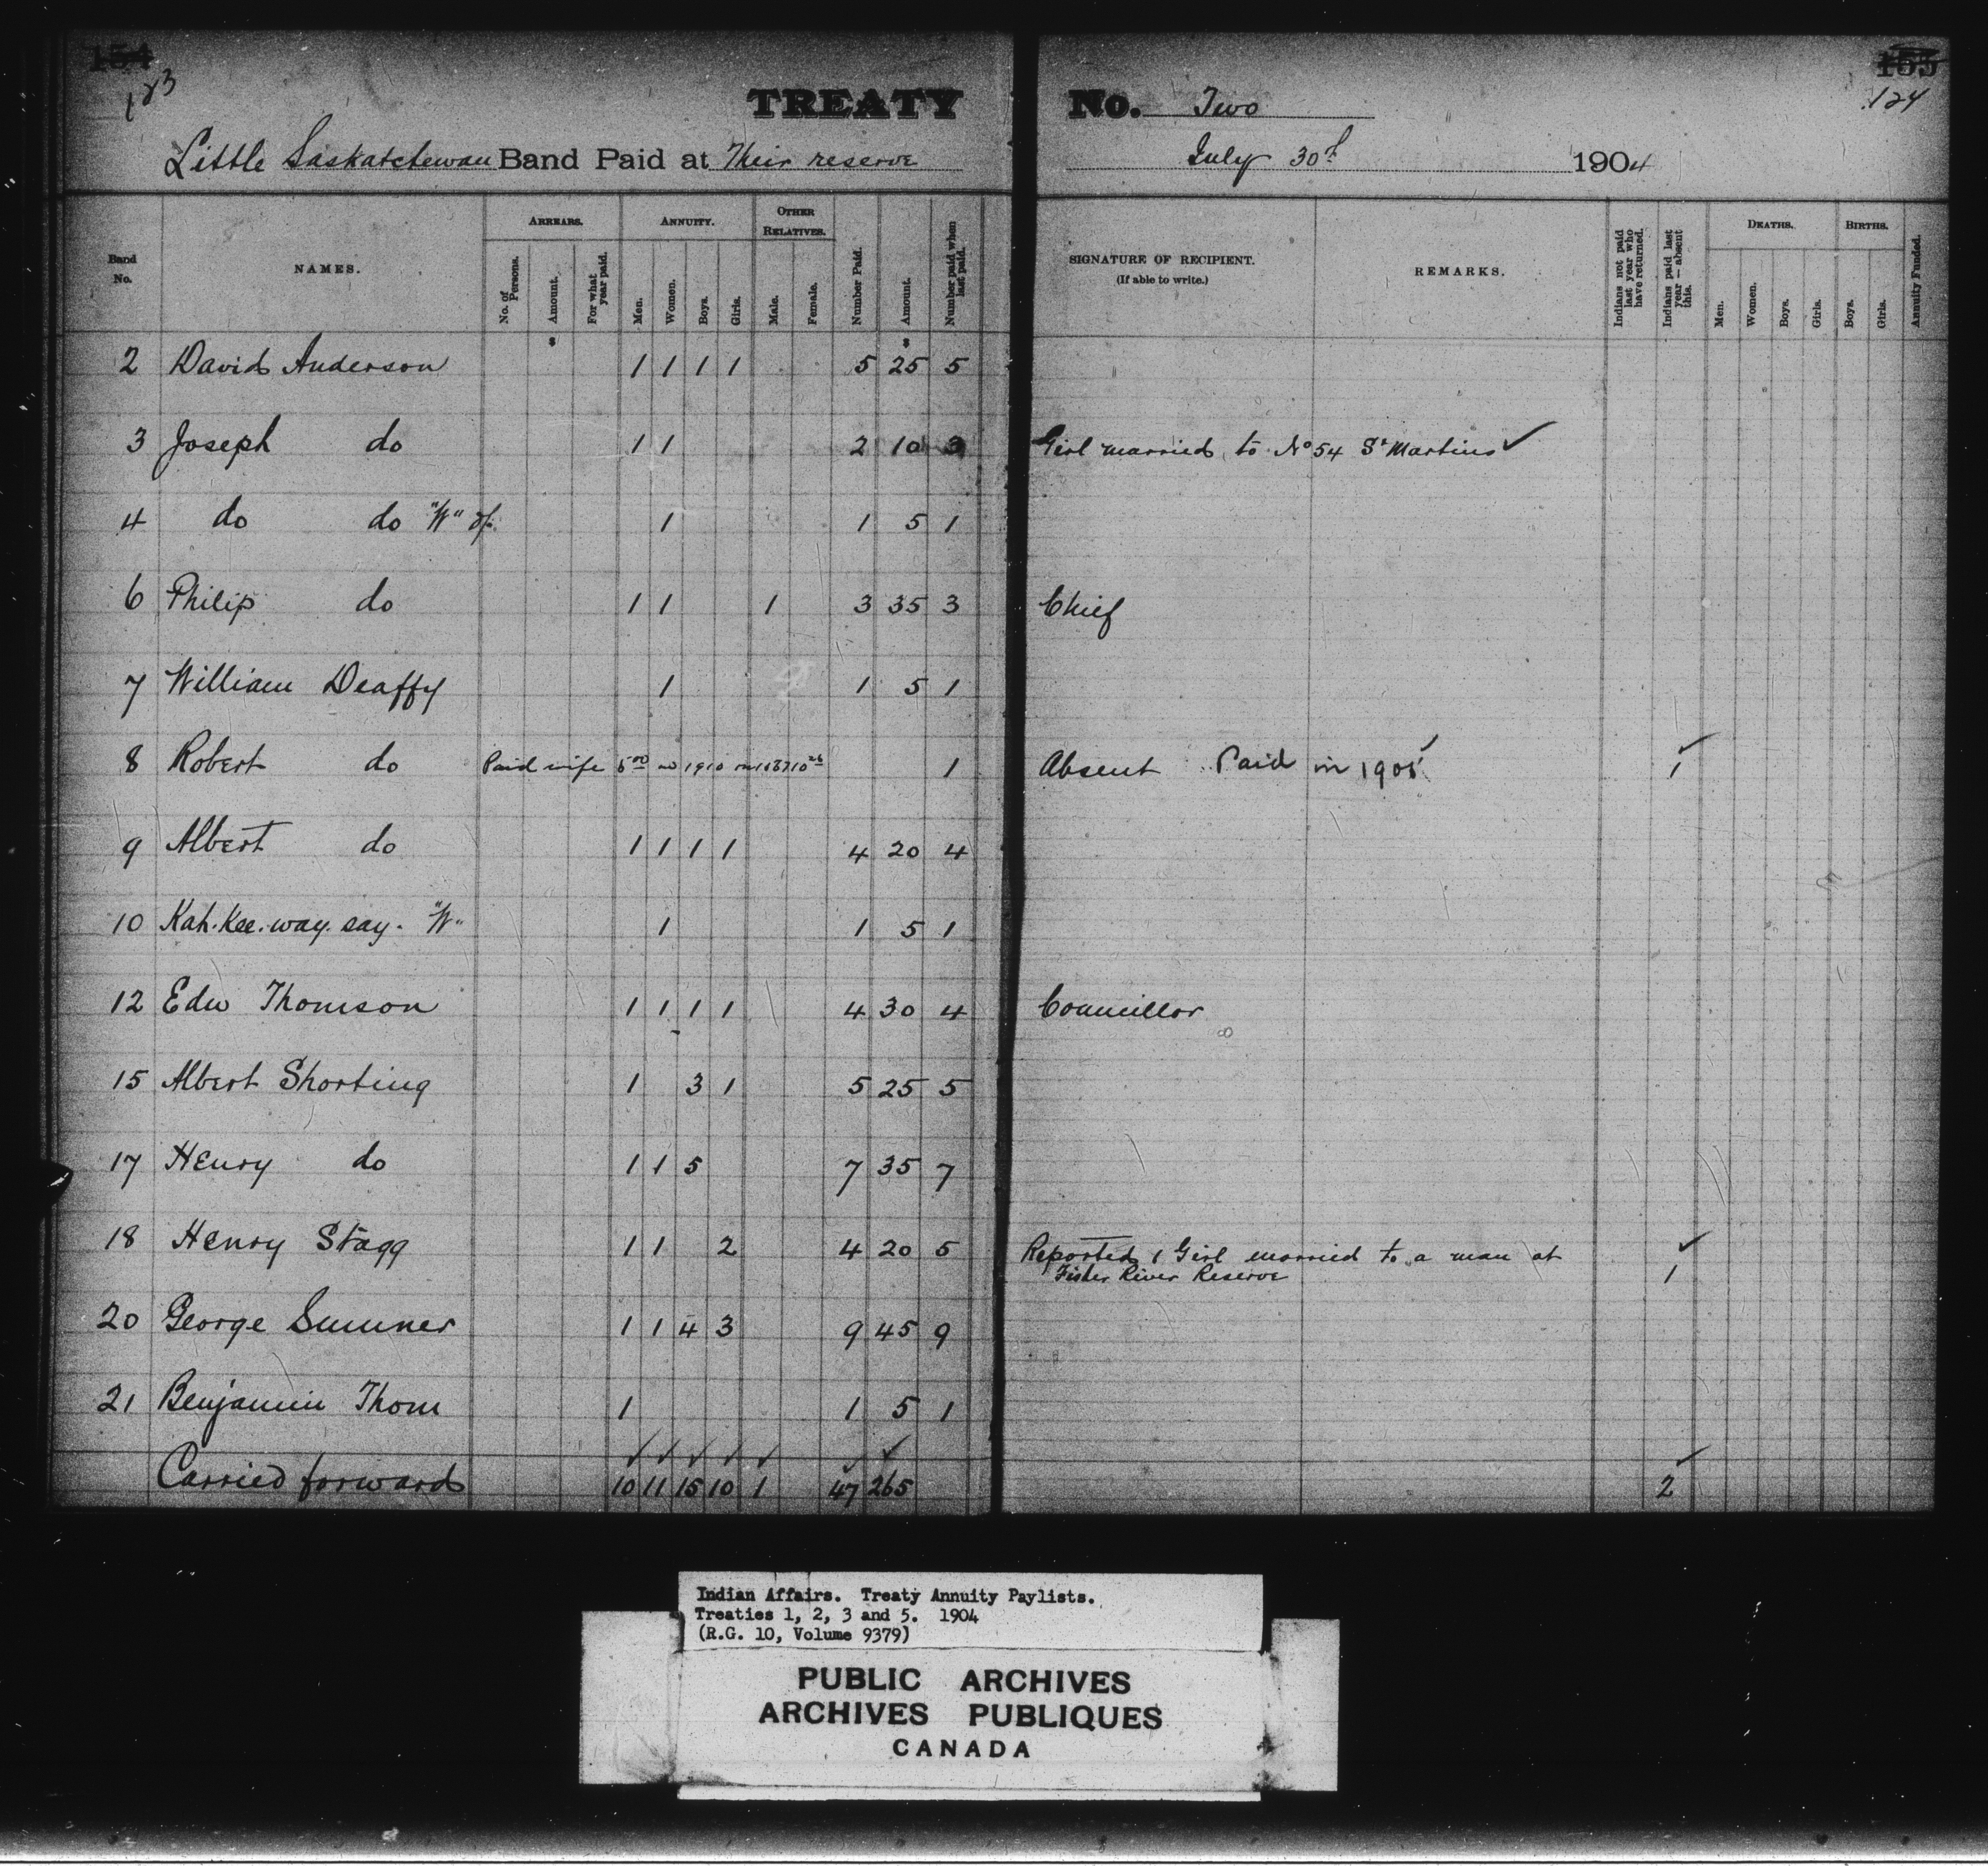 154 155
123 124
TREATY No. Two
Little Saskatchewan Band Paid at Their reserve July 30th 1904
Band No. NAMES. ARREARS. No. of Persons. Amount. For what year paid. ANNUITY. Men. Women. Boys. Girls. OTHER RELATIVES. Male. Female. Number Paid. Amount. Number paid when last paid. SIGNATURE OF RECIPIENT. (If able to write.) REMARKS. Indians not paid last year who have returned. Indians paid last year — absent this. DEATHS. Men. Women. Boys. Girls. BIRTHS. Boys. Girls. Annuity Funded.
$ $
2 David Anderson 1 1 1 1 5 25 5
3 Joseph do 1 1 2 10 3 Girl married to No 54 St Martins ✓
4 do do "W" of 1 1 5 1
6 Philip do 1 1 1 3 35 3 Chief
7 William Deaffy 1 1 5 1
8 Robert do Paid wife 5 00 1910 1 Absent Paid in 1905 ✓ ✓ 1
9 Albert do 1 1 1 1 4 20 4
10 Kah.Kee.way.say. "W" 1 1 5 1
12 Edw Thomson 1 1 1 1 4 30 4 Councillor
15 Albert Shorting 1 3 1 5 25 5
17 Henry do 1 1 5 7 35 7
18 Henry Stagg 1 1 2 4 20 5 Reported 1 Girl married to a man at ✓
Fisher River Reserve 1
20 George Sumner 1 1 4 3 9 45 9
21 Benjamin Thom 1 1 5 1
✓ ✓ ✓ ✓ ✓ ✓ ✓ ✓
Carried forward 10 11 15 10 1 47 265 2
Indian Affairs. Treaty Annuity Paylists.
Treaties 1, 2, 3 and 5. 1904
(R.G. 10, Volume 9379)
PUBLIC ARCHIVES
ARCHIVES PUBLIQUES
CANADA